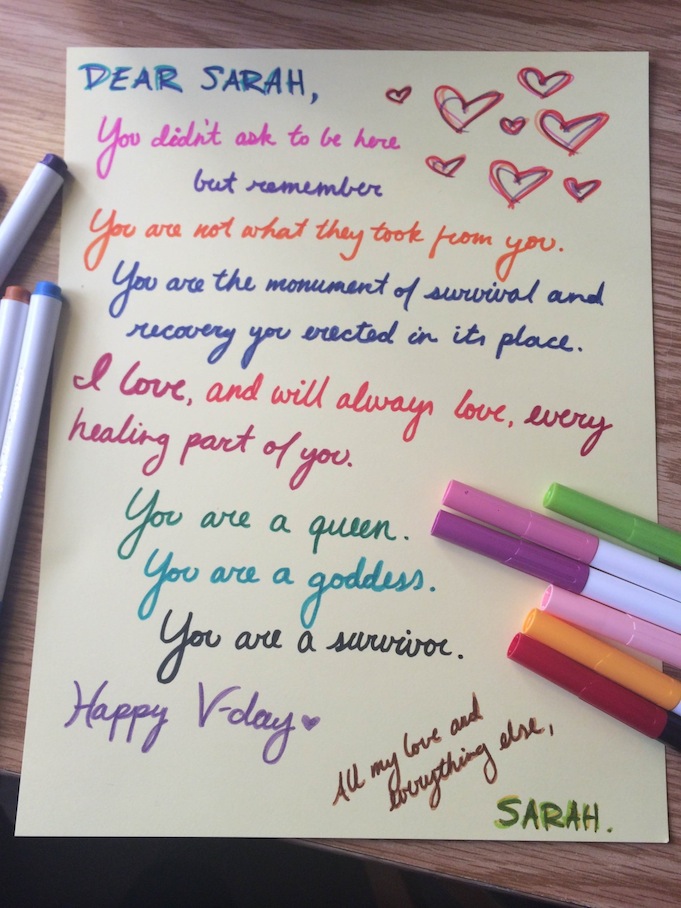 DEAR SARAH,
You didn't ask to be here
but remember
You are not what they took from you.
You are the monument of survival and
recovery you erected in its place.
I love, and will always love, every
healing part of you.
You are a queen.
You are a goddess.
You are a survivor.
Happy V-day
All my love and
everything else,
SARAH.